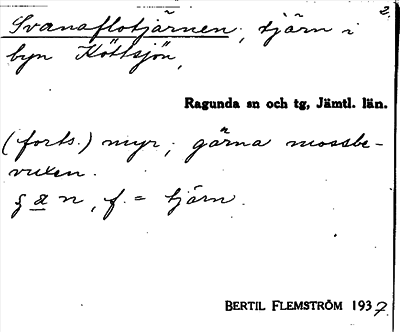 2.
Svanaflotjärnen, tjärn i
byn Köttsjön,
Ragunda sn och tg, Jämtl. län.
(forts.) myr; gärna mossbe-
vuxen.
n, f. = tjärn.
BERTIL FLEMSTRÖM 1937.